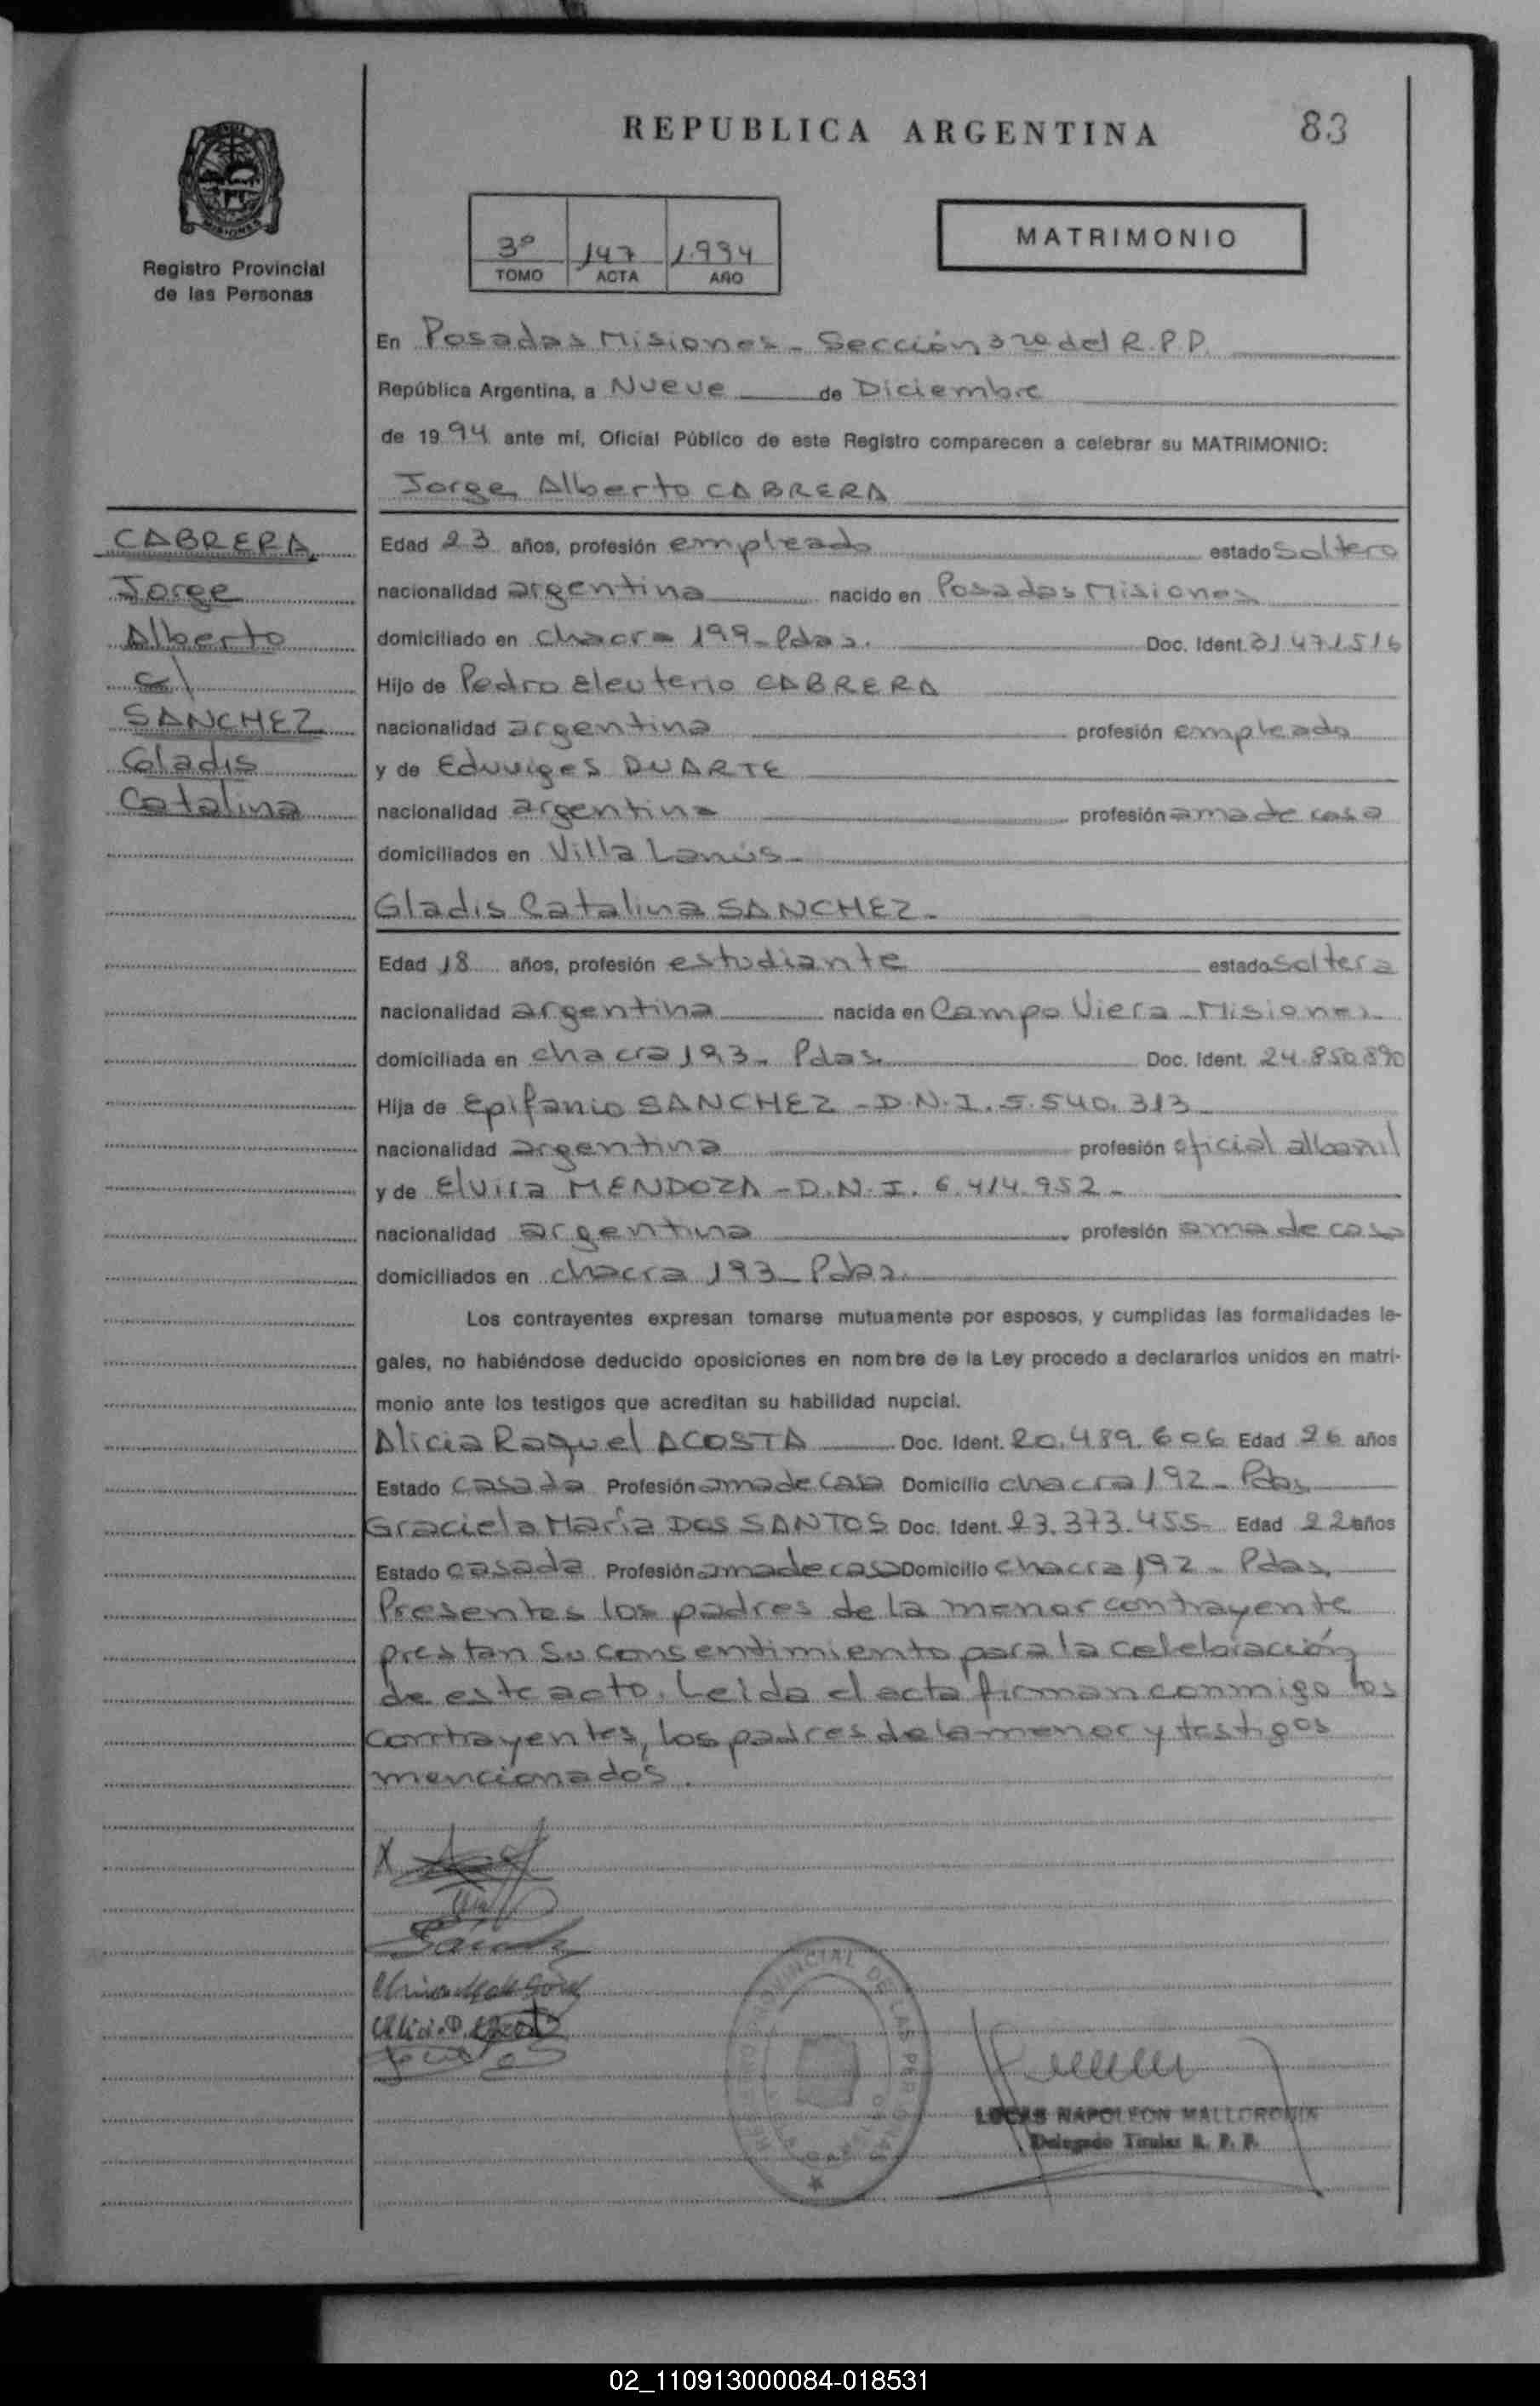 REPUBLICA ARGENTINA
83
Registro Provincial
de las Personas
3º 147 1.994
TOMO ACTA AÑO
MATRIMONIO
En Posadas Misiones - Sección 3ra del R.P.P.
República Argentina, a Nueve de Diciembre
de 1994 ante mí, Oficial Público de este Registro comparecen a celebrar su MATRIMONIO:
Jorge Alberto CABRERA
CABRERA,
Jorge
Alberto
c/
SANCHEZ
Gladis
Catalina
Edad 23 años, profesión empleado estado Soltero
nacionalidad argentina nacido en Posadas Misiones
domiciliado en chacra 199 - Pdas. Doc. Ident. 31.471.516
Hijo de Pedro Eleuterio CABRERA
nacionalidad argentina profesión empleado
y de Eduviges DUARTE
nacionalidad argentina profesión ama de casa
domiciliados en Villa Lanús -
Gladis Catalina SANCHEZ -
Edad 18 años, profesión estudiante estado Soltera
nacionalidad argentina nacida en Campo Viera - Misiones
domiciliada en chacra 193 - Pdas. Doc. Ident. 24.850.890
Hija de Epifanio SANCHEZ - D.N.I. 5.540.313
nacionalidad argentina profesión oficial albañil
y de Elvira MENDOZA - D.N.I. 6.414.952 -
nacionalidad argentina profesión ama de casa
domiciliados en chacra 193 - Pdas.
Los contrayentes expresan tomarse mutuamente por esposos, y cumplidas las formalidades le-
gales, no habiéndose deducido oposiciones en nombre de la Ley procedo a declararlos unidos en matri-
monio ante los testigos que acreditan su habilidad nupcial.
Alicia Raquel ACOSTA Doc. Ident. 20.489.606 Edad 26 años
Estado casada Profesión ama de casa Domicilio chacra 192 - Pdas
Graciela María DOS SANTOS Doc. Ident. 23.373.455 Edad 22 años
Estado casada Profesión ama de casa Domicilio chacra 192 - Pdas.
Presentes los padres de la menor contrayente
prestan su consentimiento para la celebración
de este acto. Leída el acta firman conmigo los
contrayentes, los padres de la menor y testigos
mencionados.
X
LUCAS NAPOLEON
Delegado Titular R. P. P.
02_110913000084-018531